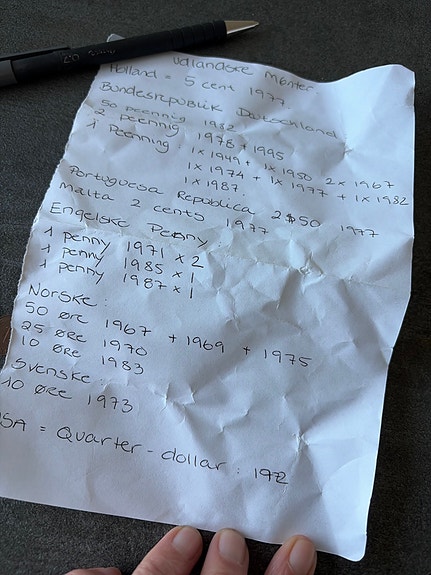 udlandske mønter
Holland = 5 cent 1977
Bundesrepublik Deutschland
50 pfennig 1982
2 pfennig 1978 + 1995
1 Pfenning: 1x1949 + 1x1950 2x1967
1x1974 + 1x1977 + 1x1982
1x1987.
Portuguesa Republica 2$50 1977
Malta 2 cents 1977
Engelske Penny
1 penny 1971 x 2
1 penny 1985 x 1
1 penny 1987 x 1
Norske
50 øre 1967 + 1969 + 1975
25 øre 1970
10 øre 1983
Svenske
10 øre 1973
USA = Quarter-dollar: 1972